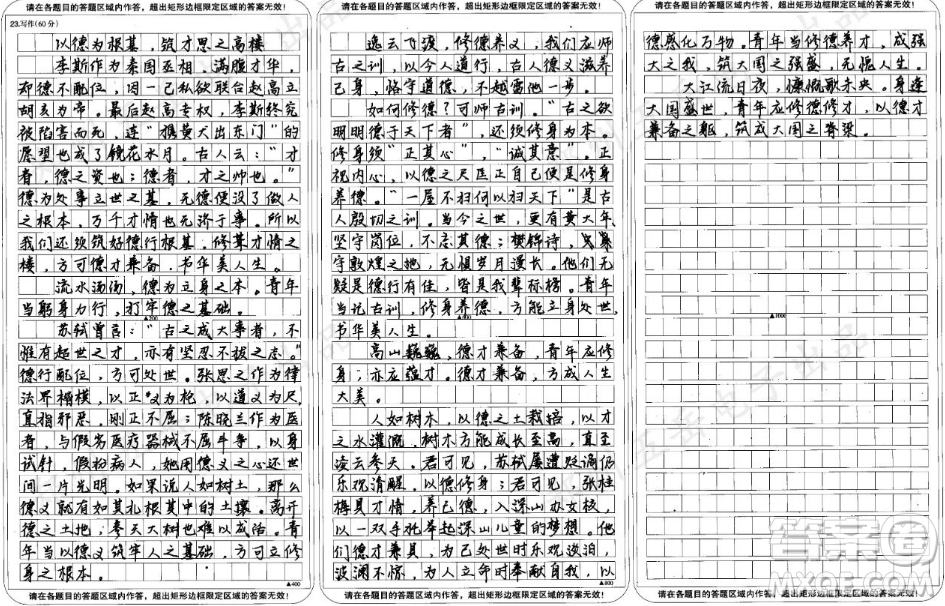 请在各题目的答题区域内作答，超出矩形边框限定区域的答案无效！
23.写作(60分)
以德为根基，筑才思之高楼
李斯作为秦国丞相，满腹才华，
却德不配位，因一己私欲联合赵高立
胡亥为帝。最后赵高专权，李斯终究
被陷害而死，连“携黄犬出东门”的
愿望也成了镜花水月。古人云：“才
者，德之资也；德者，才之帅也。”
德为处事立世之基，无德便没了做人
之根本，万千才情也无济于事。所以
我们还须筑好德行根基，修葺才情之
楼，方可德才兼备，书华美人生。
流水汤汤，德为立身之本。青年
当躬身力行，打牢德之基础。
▲200
苏轼曾言：“古之成大事者，不
惟有超世之才，亦有坚忍不拔之志。”
德行配位，方可处世。张思之作为律
法界楷模，以正义为枪，以道义为尺，
直指邪恶，刚正不屈；陈晓兰作为医
者，与假劣医疗器械不屈斗争，以身
试针，假扮病人，她用德义之心还世
间一片光明。如果说人如树土，那么
德义就有如其扎根其中的土壤。离开
德之土地，参天大树也难以成活。青
年当以德义筑牢人之基础，方可立修
身之根本。
▲400
请在各题目的答题区域内作答，超出矩形边框限定区域的答案无效！
请在各题目的答题区域内作答，超出矩形边框限定区域的答案无效！
逸云飞渡，修德养义，我们应师
古之训，以今人道行，古人德义滋养
己身，恪守道德，不越雷池一步。
如何修德？可师古训。“古之欲
明明德于天下者”，还须修身为本。
修身须“正其心”，“诚其意”。正
视内心，以德之尺匡正自己便是修身
养德。“一屋不扫何以扫天下”是古
人殷切之训。当今之世，更有黄大年，
坚守岗位，不忘其德；樊锦诗，
守敦煌之地，无惧岁月漫长。他们无
疑是德行有佳，皆是我辈标榜。青年
当记古训，修身养德，方能立身处世，
书华美人生。
高山巍巍，德才兼备，青年应修
身；亦应蕴才。德才兼备，方成人生
大美。
人如树木，以德之土栽培，以才
之水灌溉，树木方能成长至高，直至
凌云参天。君可见，苏轼屡遭贬谪仍
乐观清醒，以德修身；君可见，张桂
梅具才情，养己德，入深山办女校，
以一双手托举起深山儿童的梦想。他
们德才兼具，为己处世时乐观淡泊，
波澜不惊，为人立命时奉献自我，以
▲800
请在各题目的答题区域内作答，超出矩形边框限定区域的答案无效！
请在各题目的答题区域内作答，超出矩形边框限定区域的答案无效！
德感化万物。青年当修德养才，成强
大之我，筑大国之强盛，无愧人生。
大江流日夜，慷慨歌未央。身逢
大国盛世，青年应修德修才，以德才
兼备之躯，筑成大国之脊梁。
▲1000
请在各题目的答题区域内作答，超出矩形边框限定区域的答案无效！
答案圈
MXQE.COM